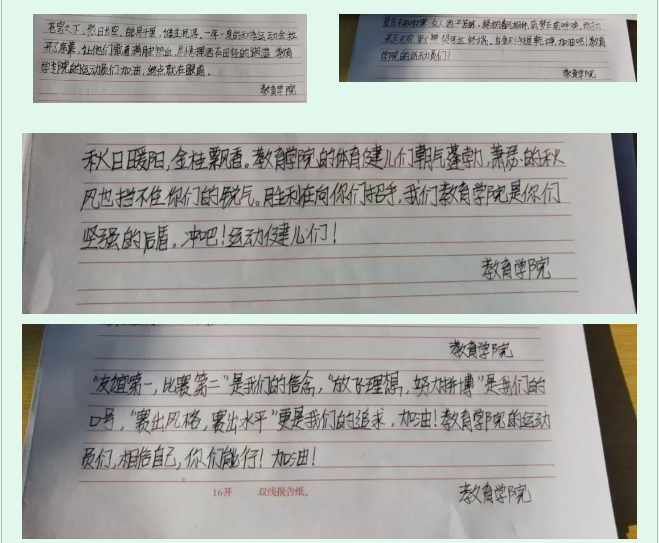 苍穹之下，烈日长空，皓月千里，惟奎花落。一年一度的秋季运动会拉
开了序幕，让他们载着满身的热血，尽情挥洒在田径的跑道，教育
学院的运动员们加油，终点就在眼前。
教育学院
学院的运动员们！
教育学院
秋日暖阳，金桂飘香。教育学院的体育健儿们朝气蓬勃，萧瑟的秋
风也挡不住你们的锐气。胜利在向你们招手，我们教育学院是你们
坚强的后盾。冲吧！运动健儿们！
教育学院
教育学院
"友谊第一，比赛第二"是我们的信念，"放飞理想，努力拼搏"是我们的
口号，"赛出风格，赛出水平"更是我们的追求，加油！教育学院的运动
员们，相信自己，你们能行！加油！
16开 双线报告纸.
教育学院